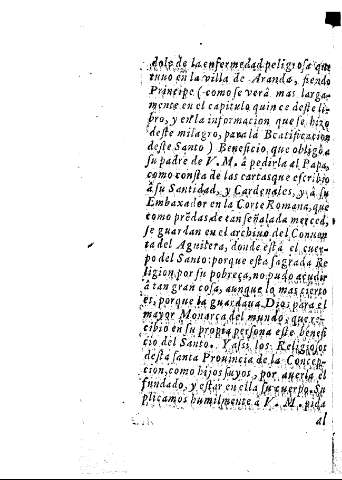 dole de la enfermedad peligrosa que
tuuo en la villa de Aranda, siendo
Principe (como se verà mas larga-
mente en el capitulo quince deste li-
bro, y en la informacion que se hizo
deste milagro, para la Beatificacion
deste Santo) Beneficio, que obligò a
su padre de V. M. à pedirla al Papa,
como consta de las cartas que escribio
à su Santidad, y Cardenales, y à su
Embaxador en la Corte Romana, que
como prẽdas de tan señalada merced,
se guardan en el archiuo del Conuen-
to del Aguilera, donde està el cuer-
po del Santo: porque esta sagrada Re
ligion por su pobreça, no pudo acudir
à tan gran cosa, aunque lo mas cierto
es, porque la guardaua Dios para el
mayor Monarca del mundo, que re-
cibio en su propria persona este benefi
cio del Santo. Y assi los Religiosos
desta santa Prouincia de la Concep-
cion, como hijos suyos, por auerla el
fundado, y estar en ella su cuerpo. Su
plicamos humilmente a V. M. pida
al